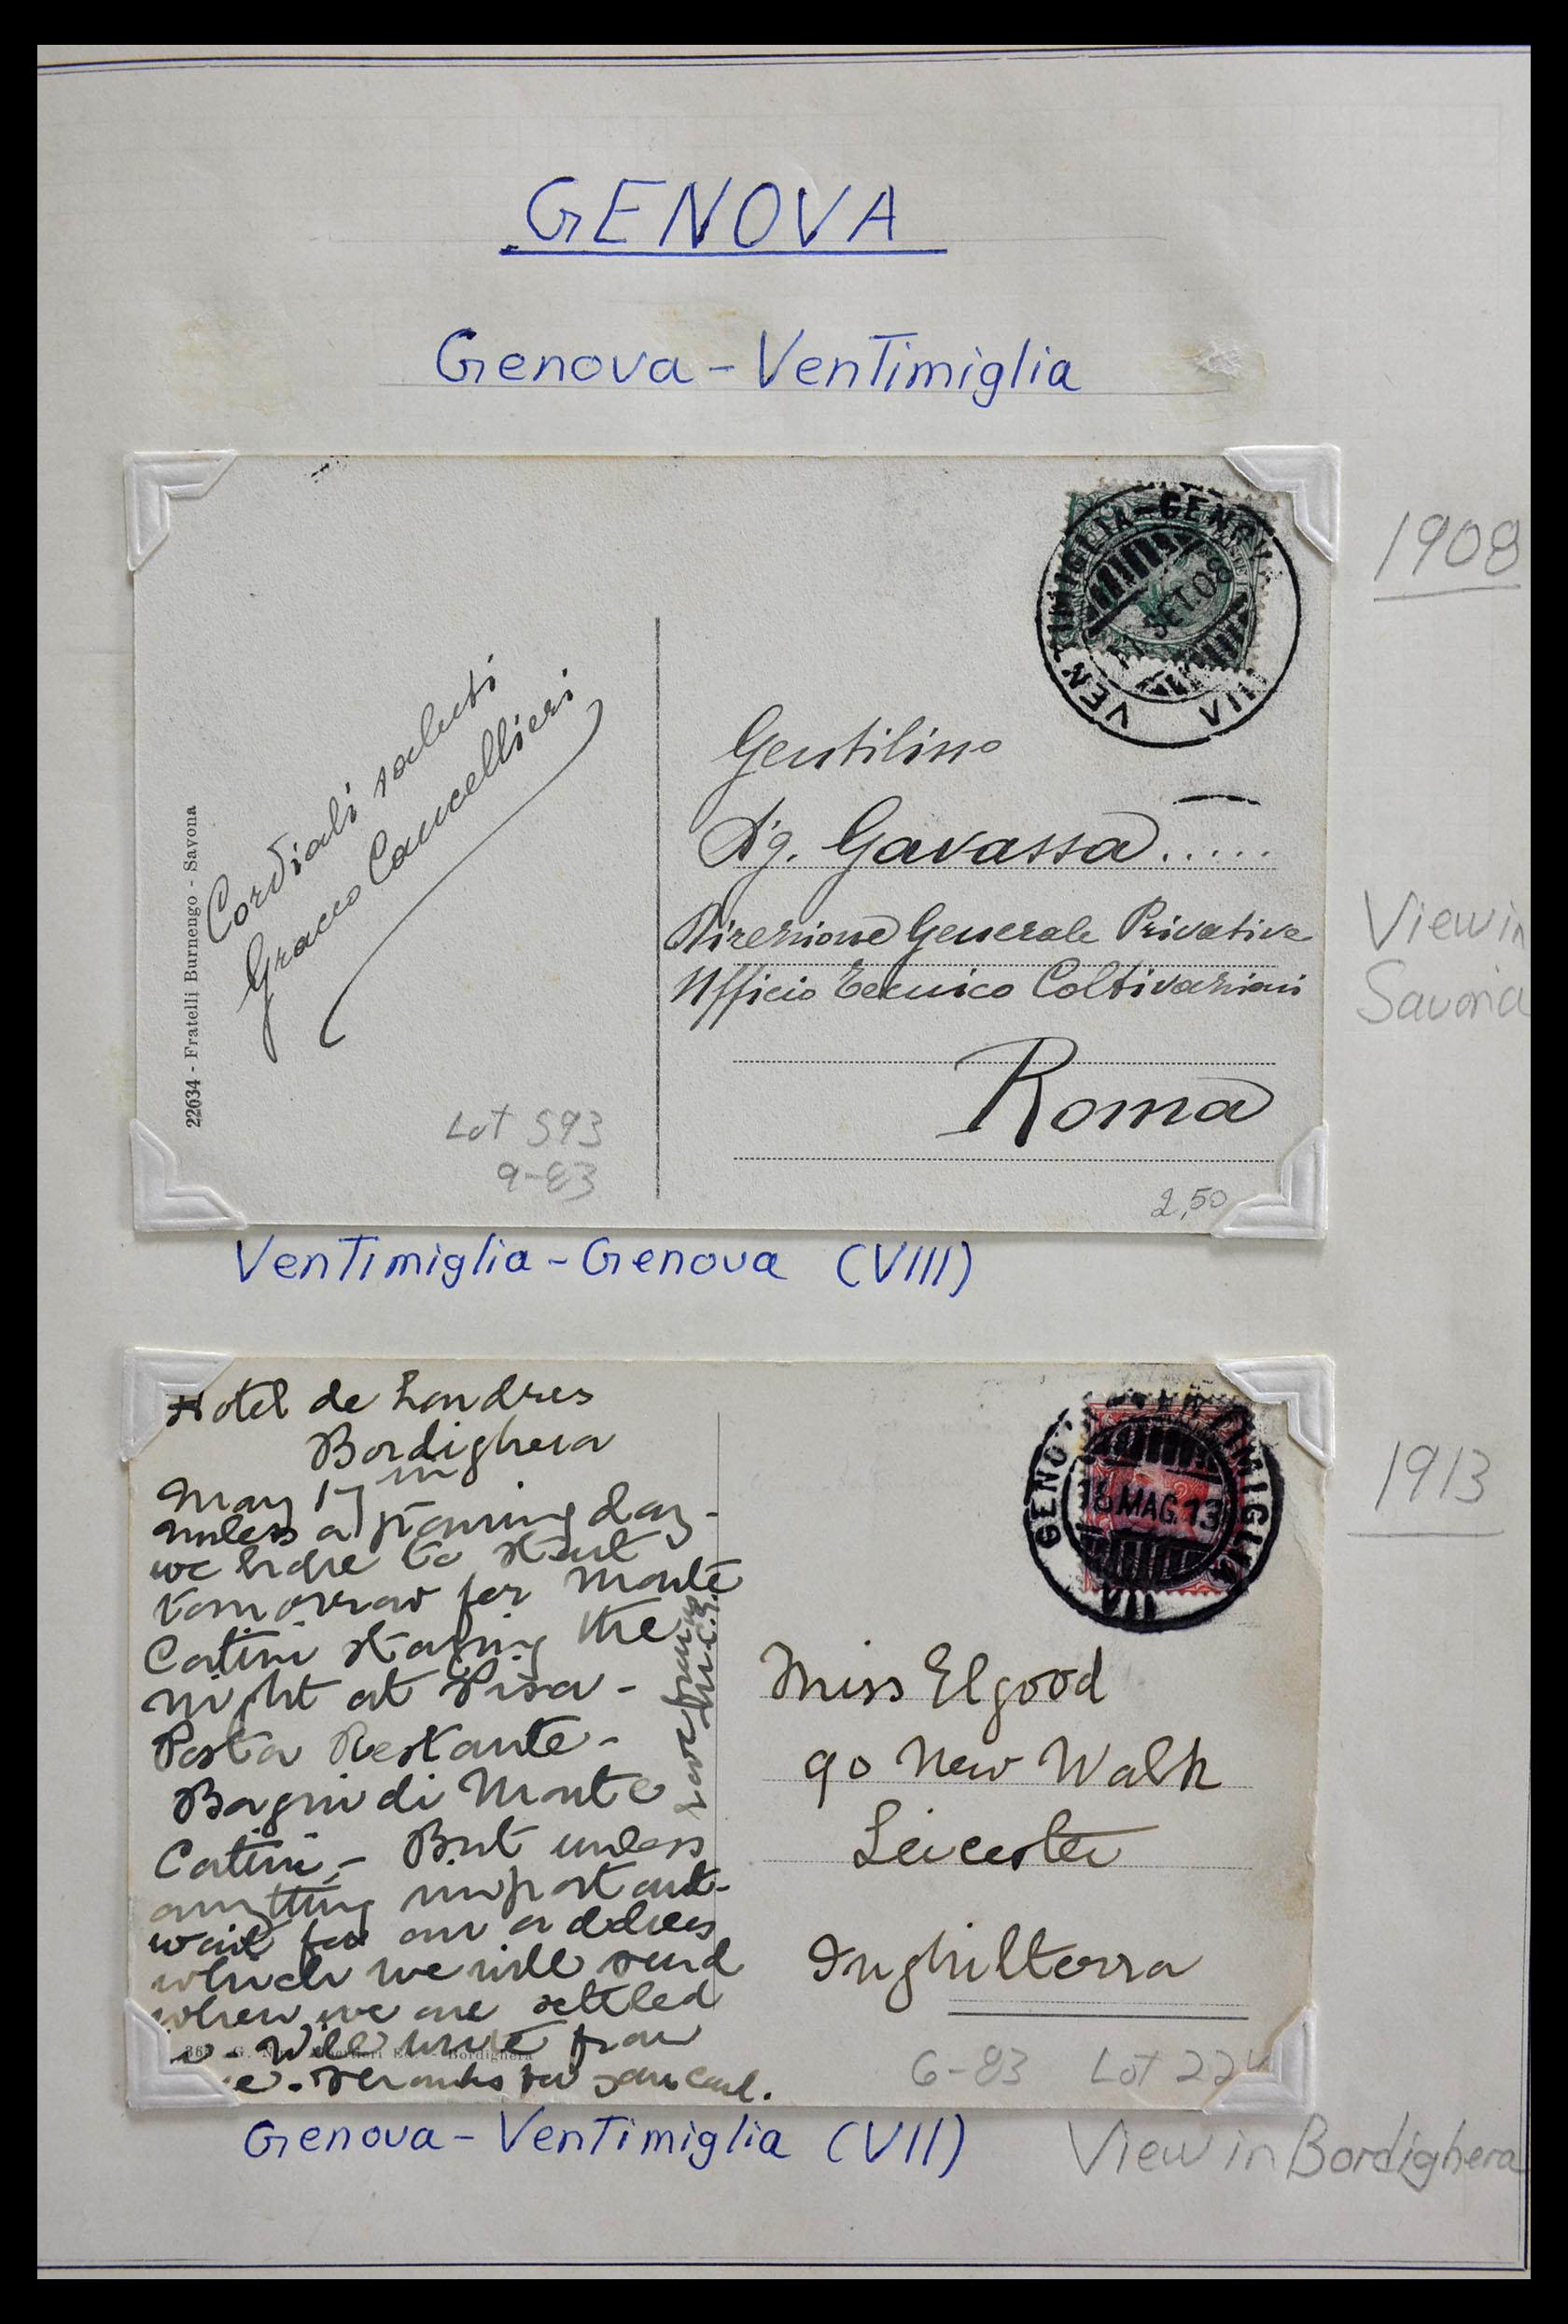 GENOVA
Genova - Ventimiglia
VENTIMIGLIA-GENOV
SET.08
VIII
1908
Cordiali saluti
Gracco Cancellieri
22634 - Fratelli Burnengo - Savona
Gentilisso
Sig. Gavassa.....
Direzione Generale Privative
Ufficio Tecnico Coltivazioni
Roma
View in
Savona
Lot 593
9-83
2,50
Ventimiglia - Genova (VIII)
Hotel de Londres
Bordighera
May 17
unless a pouring day -
we hope to start
tomorrow for Monte
Catini staying the
night at Pisa -
Posta Restante -
Bagni di Monte
Catini - But unless
anything important -
wait for our address
which we will send
when we are settled
- Will write from
. Thanks for your card.
Love from
GENO
TIMIGLIA
18 MAG.13
VII
1913
Miss Elgood
90 New Walk
Leicester
Inghilterra
Bordighera
6-83 Lot 224
Genova - Ventimiglia (VII)
View in Bordighera